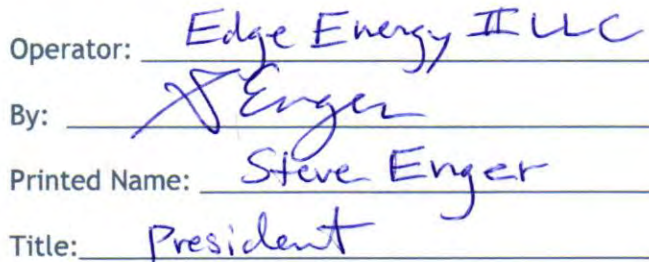 Operator: Edge Energy II LLC
By: S Enger
Printed Name: Steve Enger
Title: President